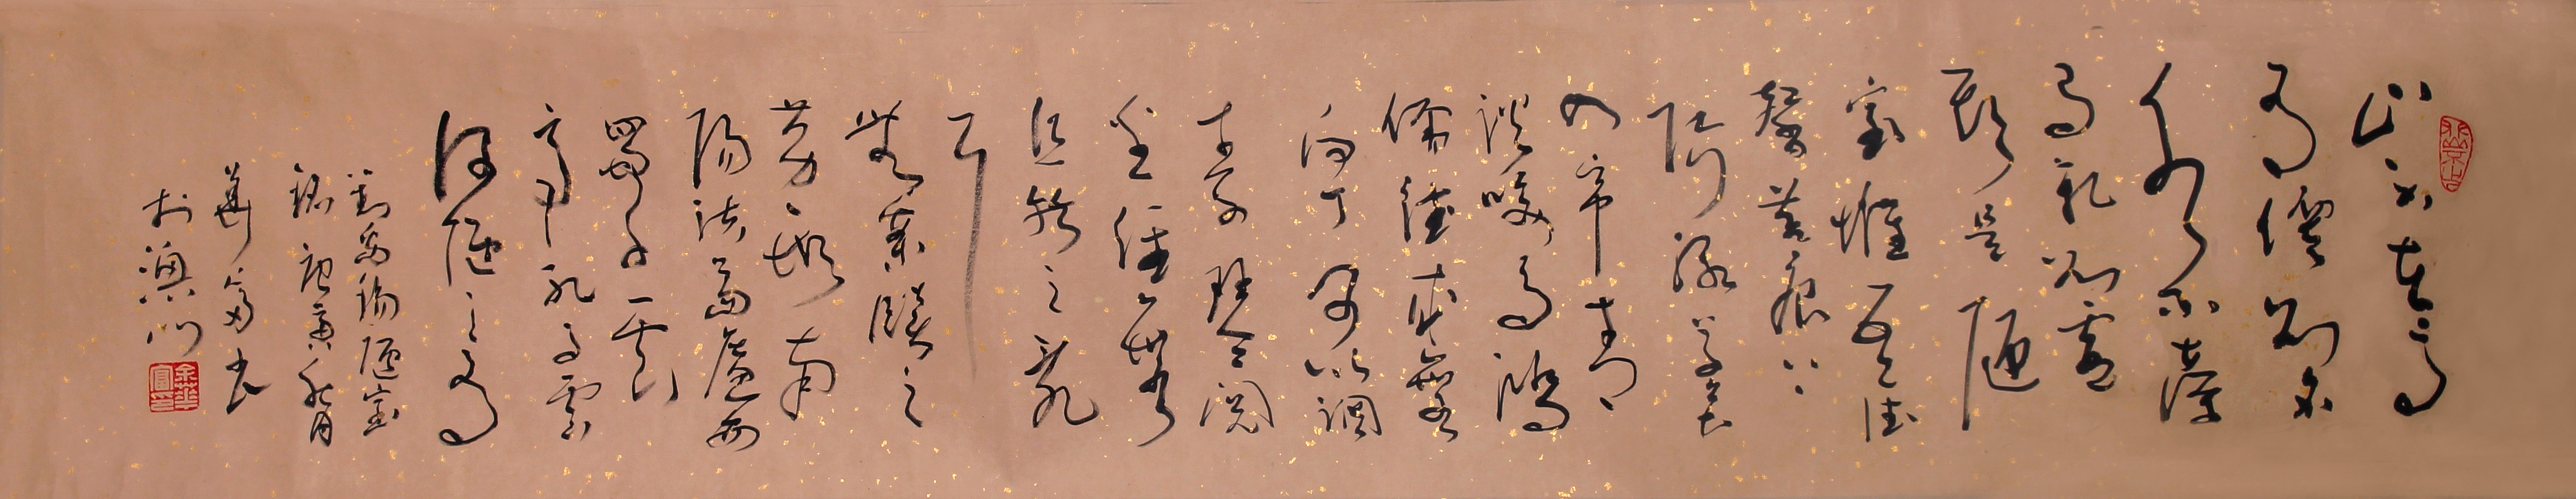 山不在高
有僊則名
水不在深
有龍則靈
斯是陋
室惟吾德
馨苔痕上
階綠草色
入帘青
談笑有鴻
儒往來無
白丁可以調
素琴閱
金經無
絲竹之亂
耳
無案牘之
勞形南
陽諸葛廬西
蜀子雲
亭孔子云
何陋之有
劉禹錫陋室
銘庚寅秋月
華富書
於澳門
余華富印